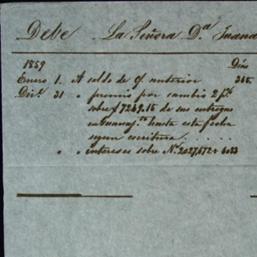 Debe La Señora D.ª Juana
1859 Días
Enero 1. A saldo de cta anterior 365
Dic.e 31 " premio por cambio 2 p%
sobre $7249.15 de sus entregas
en Guanaj.to hasta esta fecha
segun escritura . . . . .
" " intereses sobre N.os 2027,672 á 6%